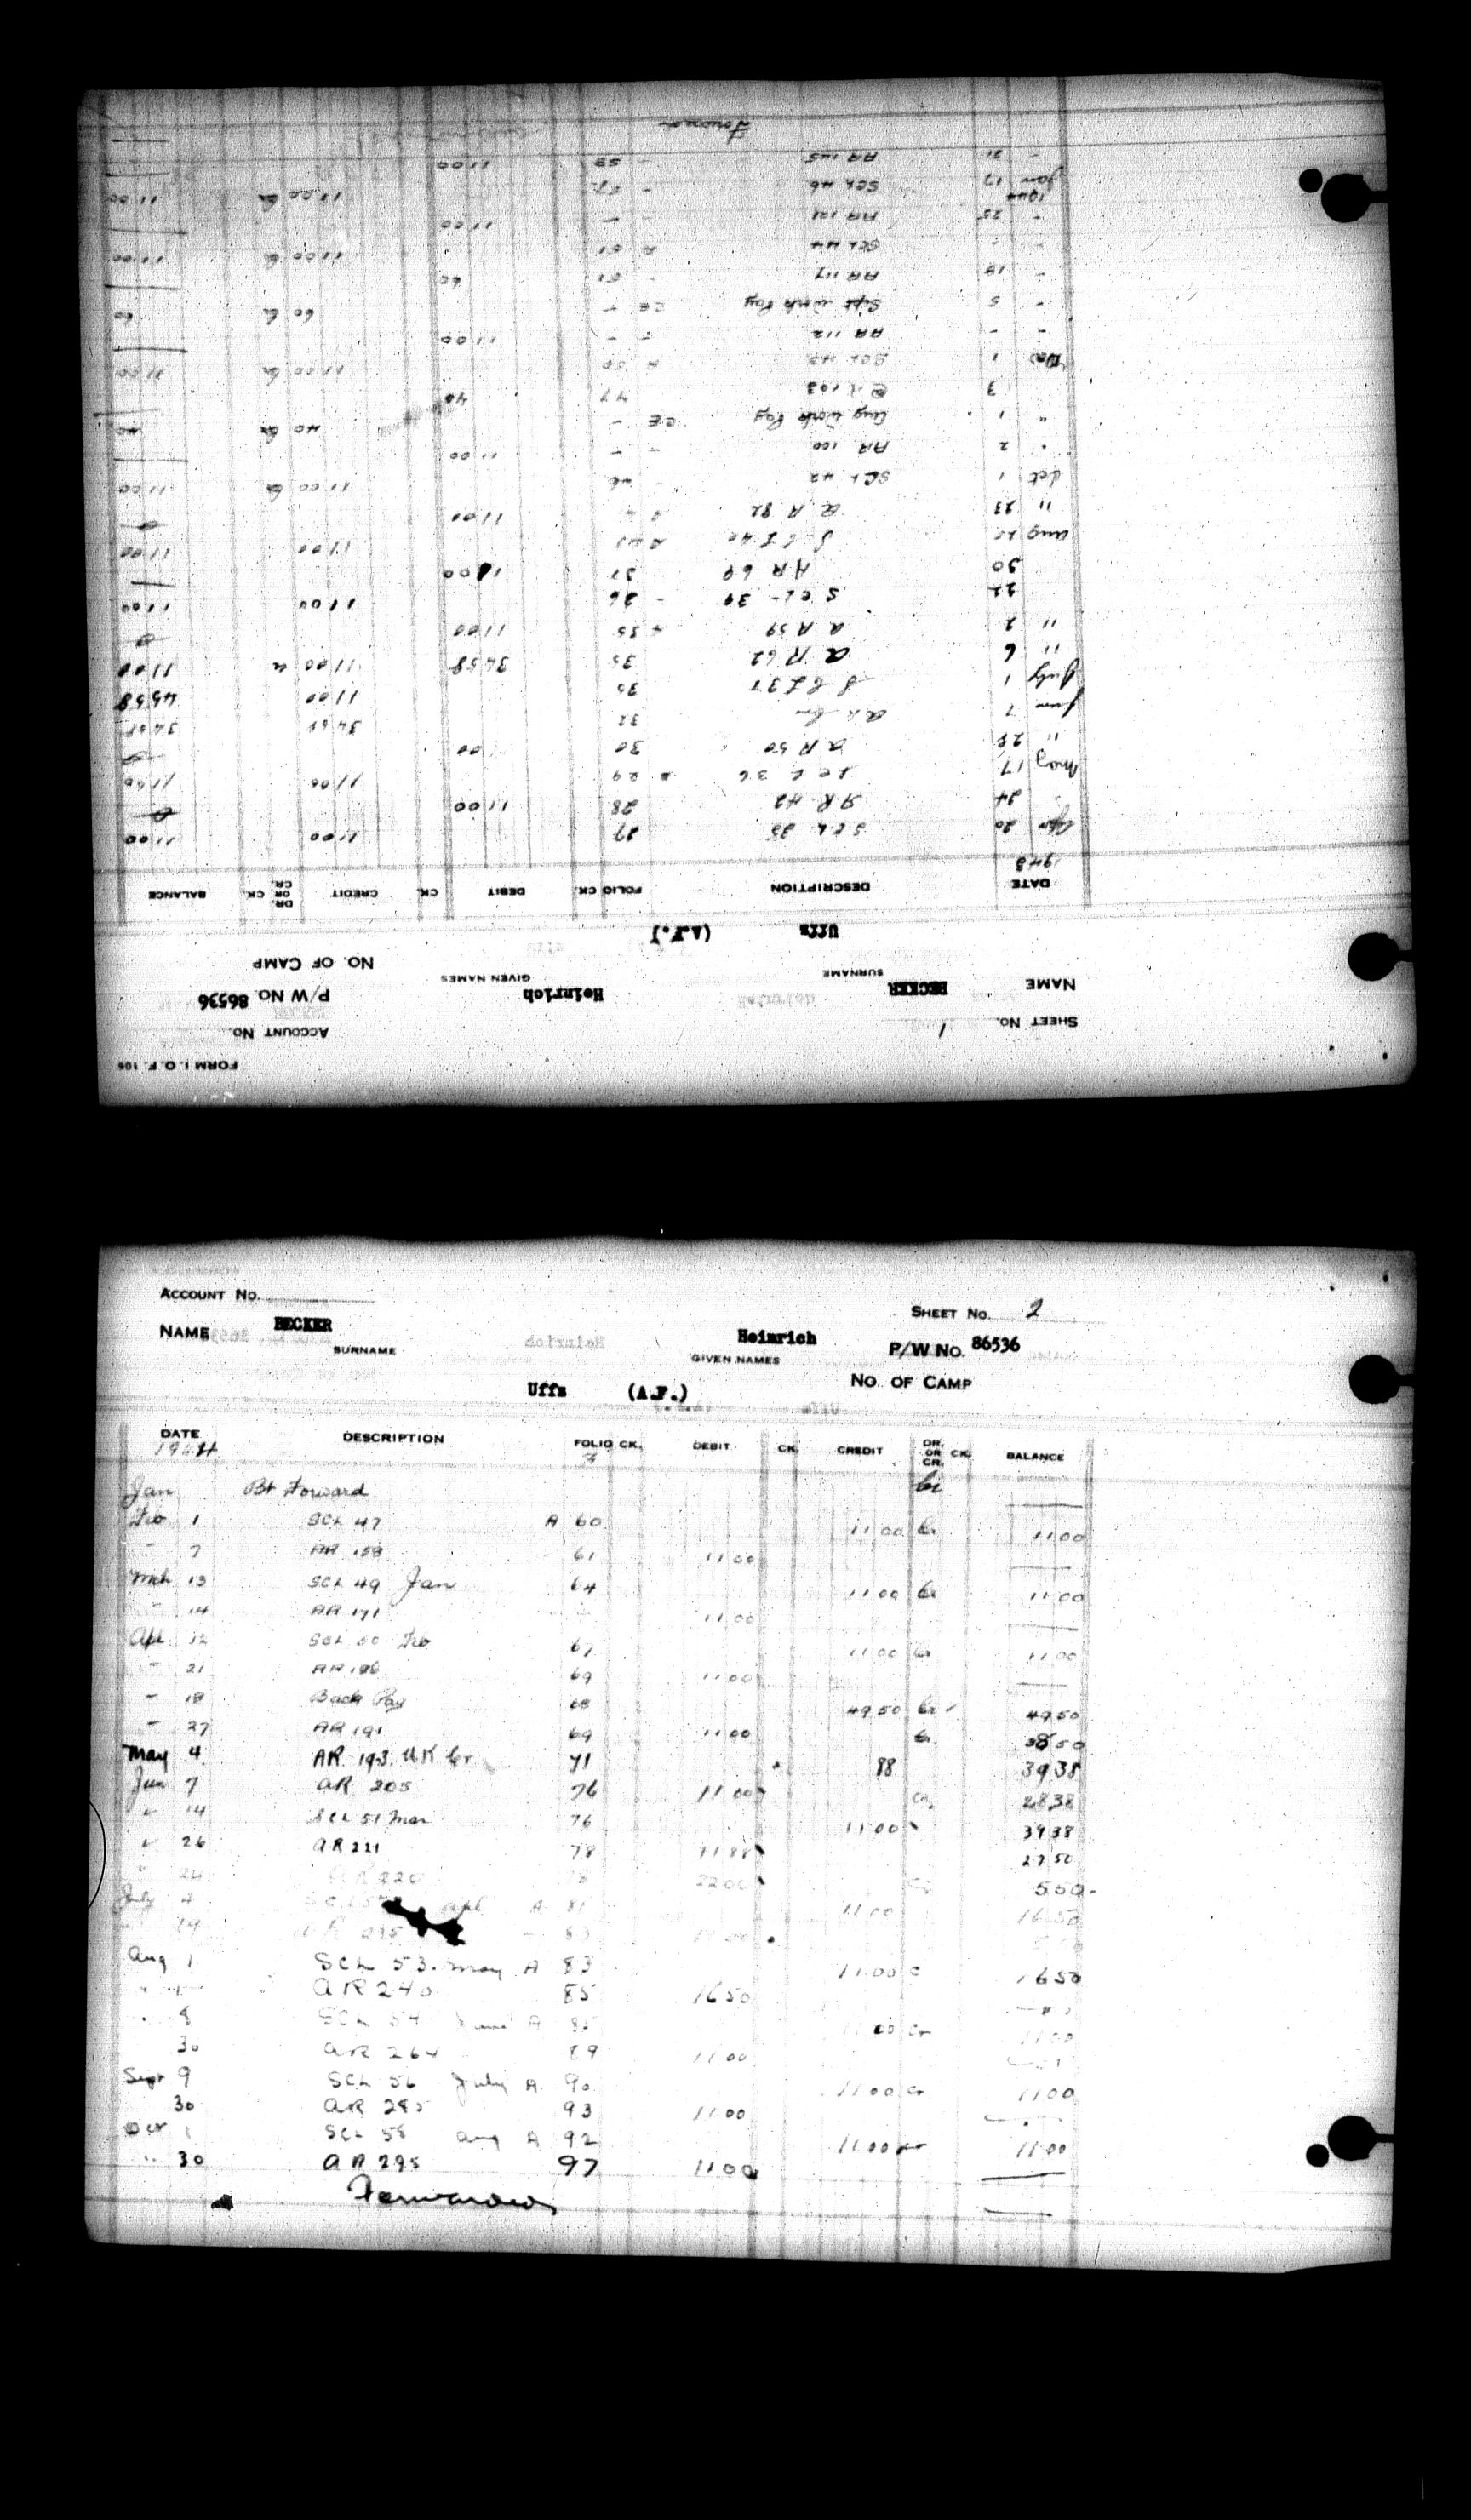 FORM I. O. F. 106
ACCOUNT No.
SHEET No. 1
P/W No. 86536
NAME BECKER Heinrich
SURNAME GIVEN NAMES
NO. OF CAMP
Uffz (A.F.)
DATE DESCRIPTION FOLIO CK. DEBIT CK. CREDIT DR. OR CR. CK. BALANCE
1943
Apr 20 SCL 35 27 11 00 11 00
24 AR 42 28 11 00 0
May 17 SCL 36 29 11 00 11 00
" 28 AR 50 30 11 00
June 7 32 34 58 34 58
July 1 SCL 37 35 11 00 45 58
" 6 AR 62 35 34 58 11 00 11 00
" 2 AR 59 35 11 00 0
22 SCL 39 36 11 00 11 00
30 AR 69 37 11 00
Aug SCL 40 11 00 11 00
" 23 AR 82 11 00 0
Oct 1 SCL 42 - 46 11 00 Cr 11 00
" 2 AR 100 - - 11 00
" 1 Aug Work Pay CE - 40 Cr 40
3 CR 103 47 40
Nov 1 SCL 43 A 50 11 00 Cr 11 00
- - AR 112 - - 11 00
- 5 Sept Work Pay CE - 60 Cr 60
- 19 AR 117 - 51 60
- - SCL 44 A 51 11 00 Cr 11 00
- 25 AR 121 - - 11 00
1944
Jan 17 SCL 46 - 11 00 Cr 11 00
- 21 AR 145 - 59 11 00
Forward
ACCOUNT No.
SHEET No. 2
NAME BECKER Heinrich P/W No. 86536
SURNAME GIVEN NAMES
NO. OF CAMP
Uffz (A.F.)
DATE DESCRIPTION FOLIO CK. DEBIT CK. CREDIT DR. OR CR. CK. BALANCE
1944
Jan Bt Forward Cr
Feb 1 SCL 47 A 60 11 00 Cr 11 00
- 7 AR 158 61 11 00
Mch 13 SCL 49 Jan 64 11 00 Cr 11 00
- 14 AR 171 11 00
Apl 12 SCL 50 Feb 67 11 00 Cr 11 00
- 21 AR 186 69 11 00
- 18 Back Pay 68 49 50 Cr 49 50
- 27 AR 191 69 11 00 Cr 38 50
May 4 AR 193 UK Cr 71 88 39 38
Jun 7 AR 205 76 11 00 CR. 28 38
" 14 SCL 51 Mar 76 11 00 39 38
" 26 AR 221 78 11 88 27 50
" 24 AR 220 78 22 00 Cr 5 50
July 4 Apl A 81 11 00 16 50
" 14 AR 235 83
Aug 1 SCL 53 May A 83 11 00 C 16 50
AR 240 85 16 50
" 8 SCL 54 June A 85 11 00 Cr 11 00
30 AR 264 89 11 00
Sept 9 SCL 56 July A 90 11 00 Cr 11 00
30 AR 285 93 11 00
Oct 1 SCL 58 Aug A 92 11 00 Cr 11 00
" 30 AR 295 97 11 00
Forwarded